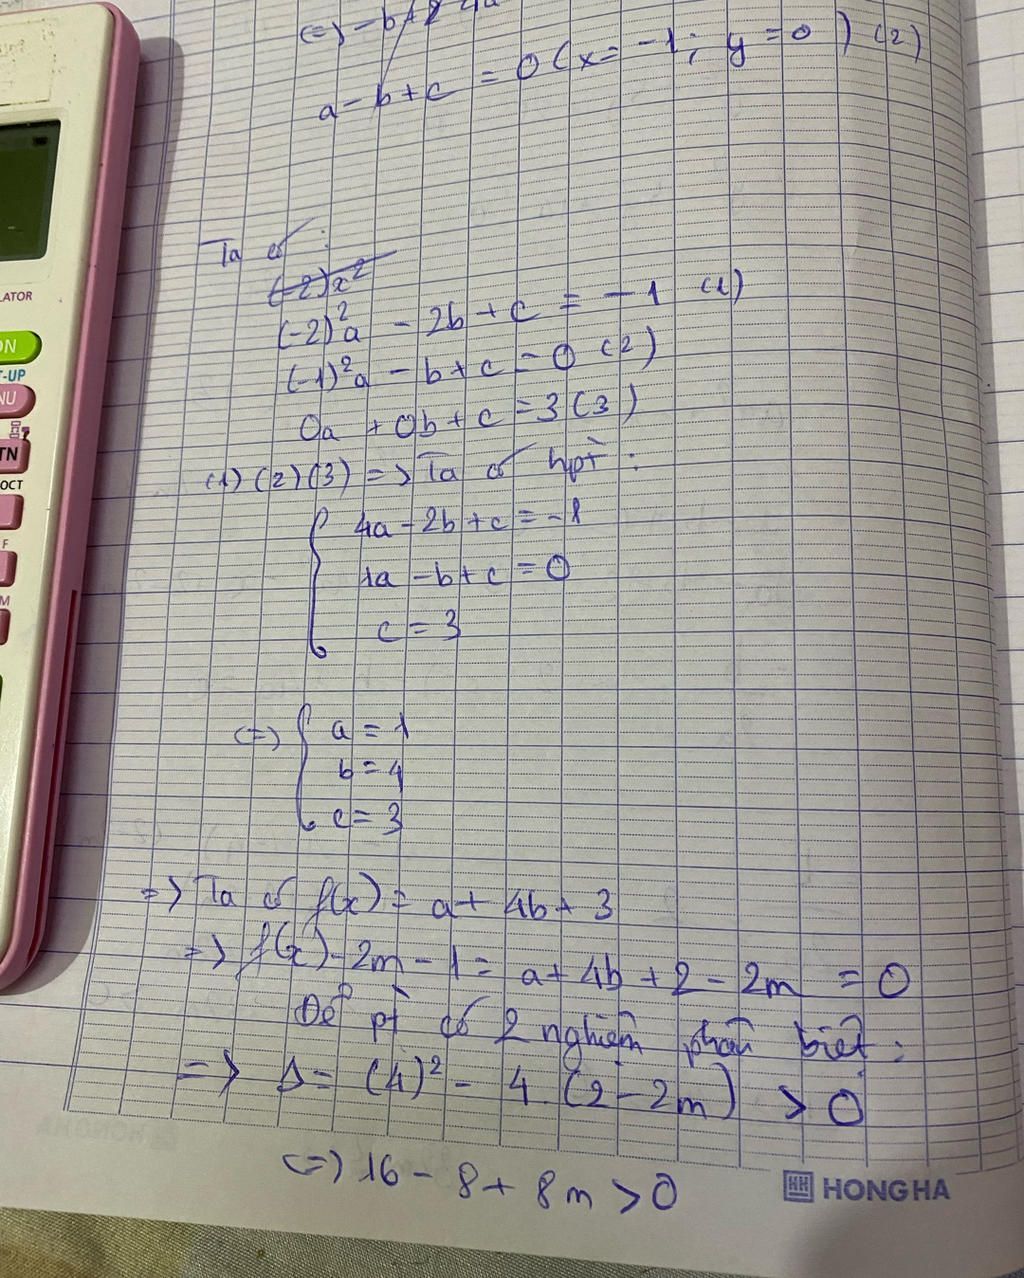 (=) -b+
a-b+c = 0 (x=-1; y=0) (2)
Ta có:
(-2)x²
(-2)²a - 2b+c = -1 (1)
(-1)²a - b+c = 0 (2)
0a + 0b + c = 3 (3)
(1) (2) (3) => Ta có hpt:
4a-2b+c=-1
1a-b+c=0
c=3
(=) a=1
b=4
c=3
=> Ta có f(x) = a+4b+3
=> f(x)-2m-1= a+4b+2-2m = 0
Để pt có 2 nghiệm phân biệt:
=> Δ= (4)² - 4.(2-2m) > 0
(=) 16-8+8m>0
LATOR
ON
T-UP
NU
TN
OCT
F
M
HH HONG HA